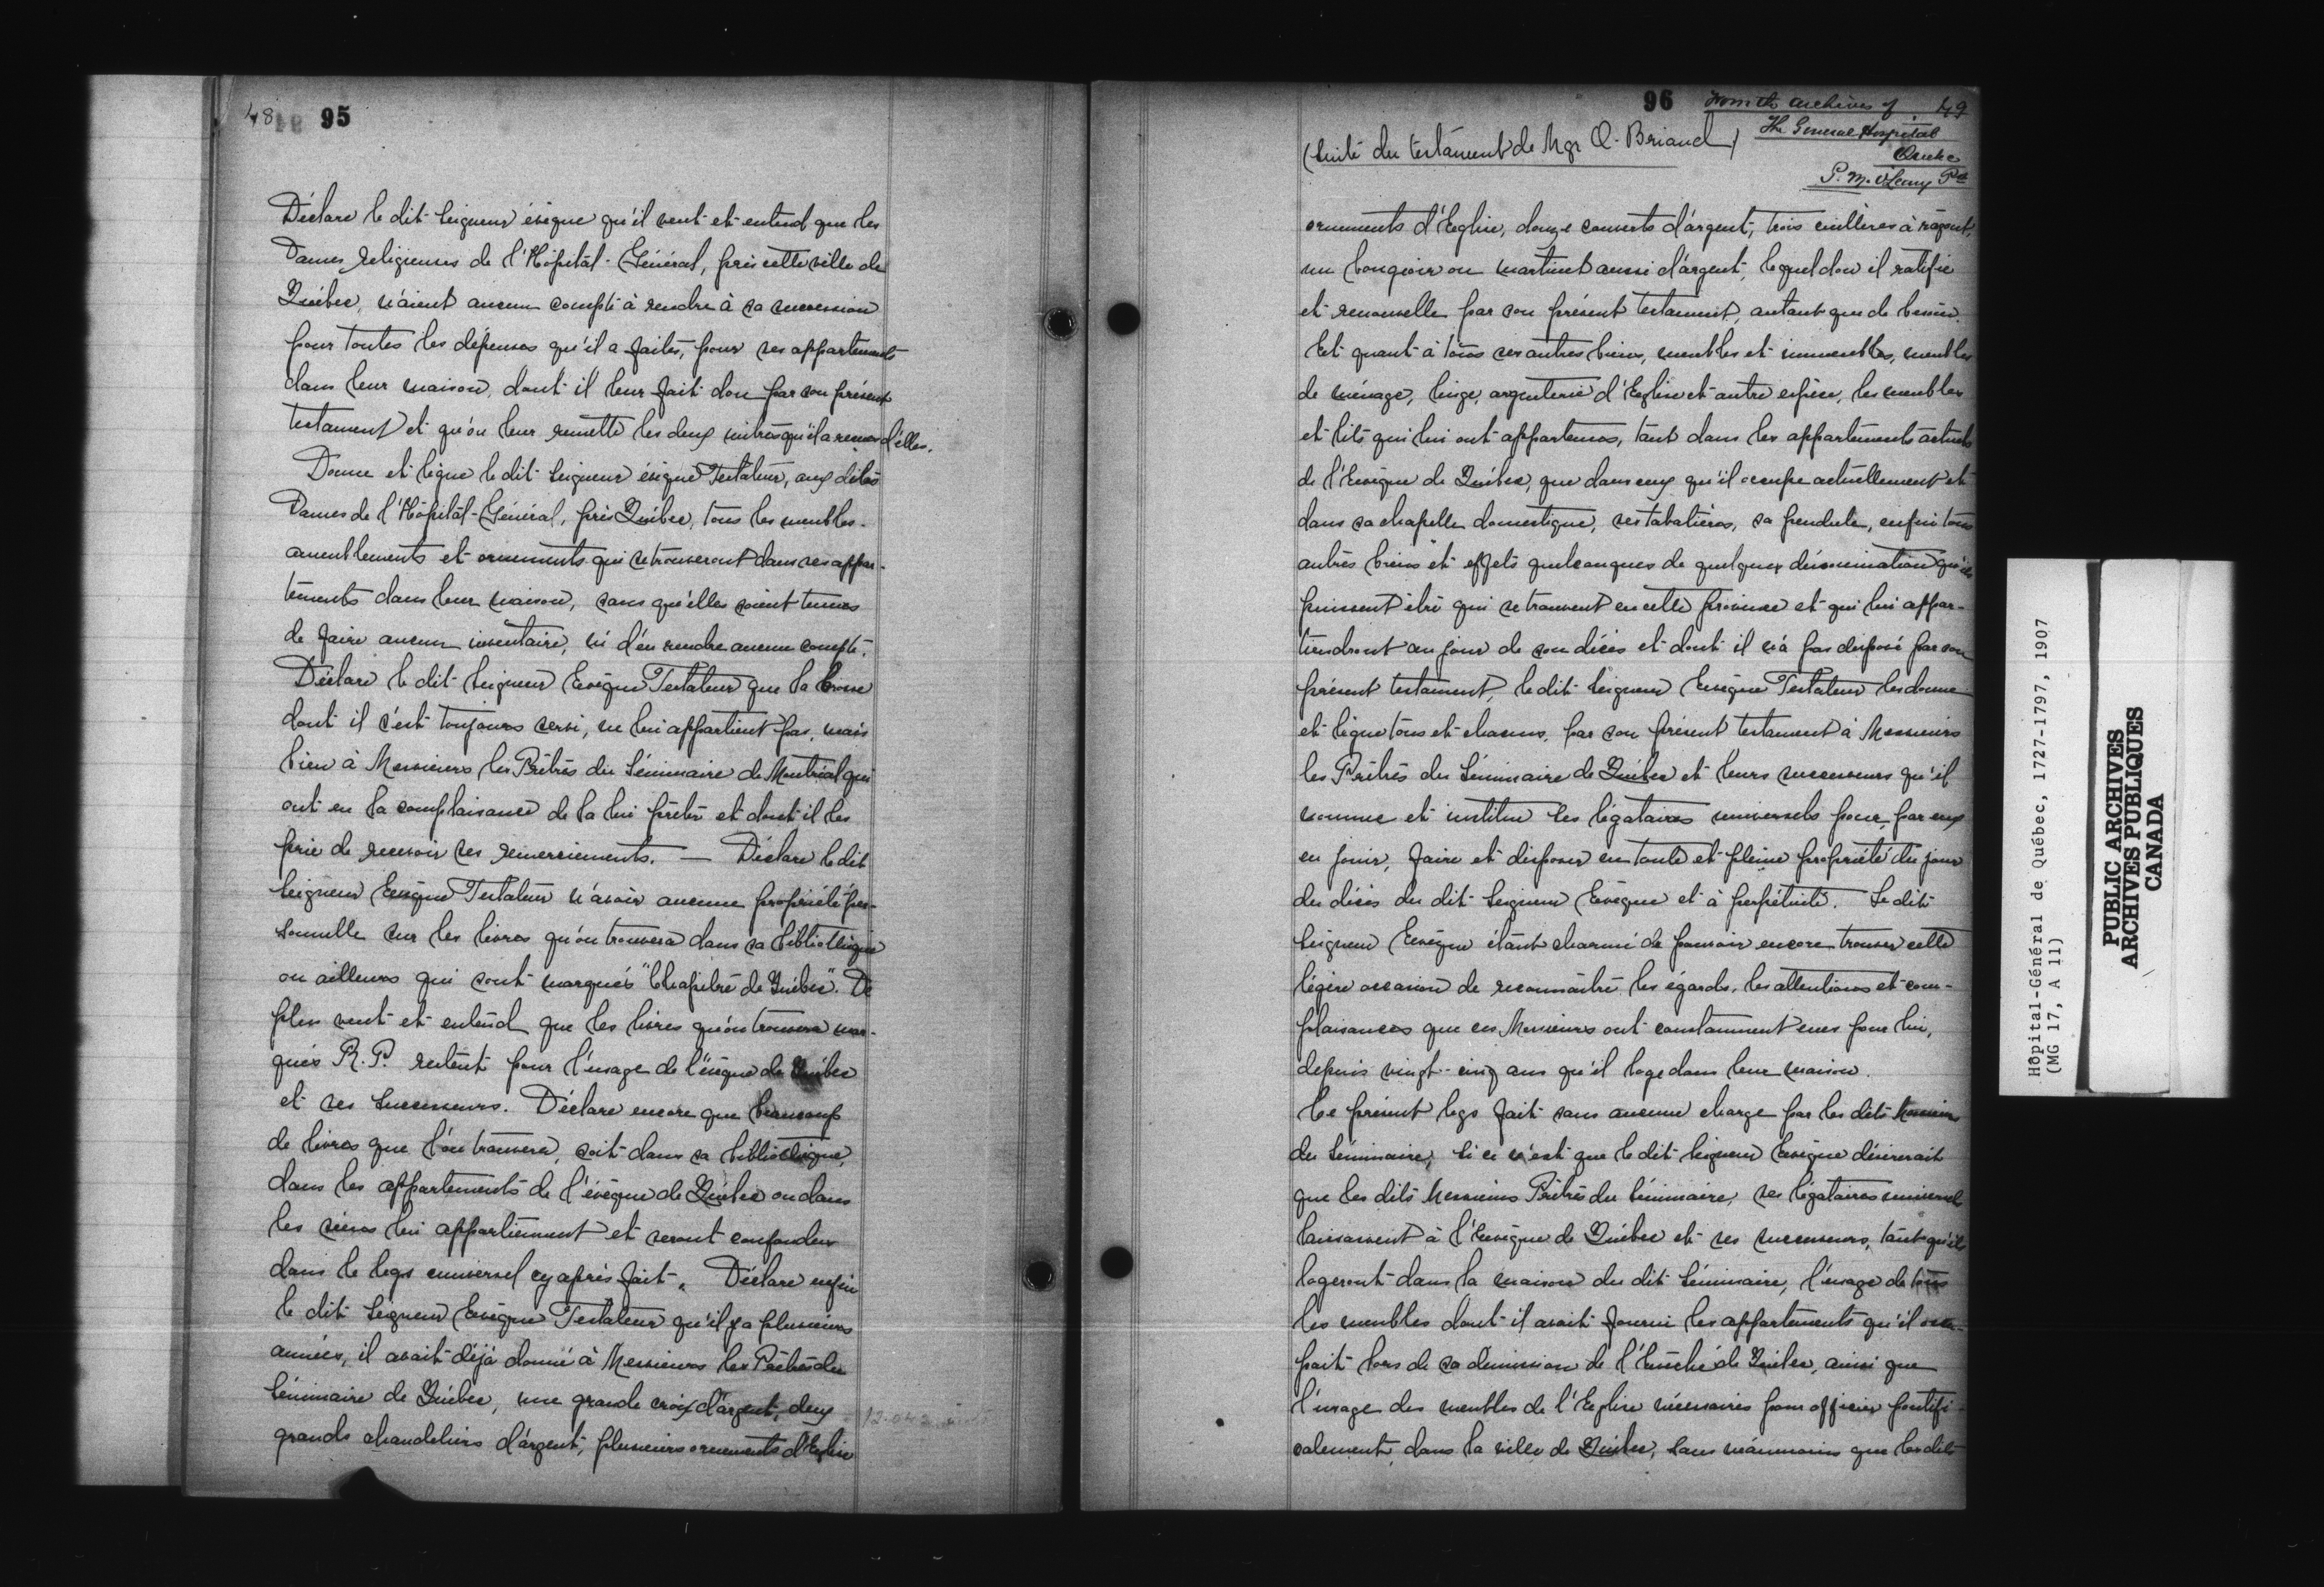 48 95
Déclare le dit Seigneur évêque qu'il veut et entend que les
Dames religieuses de l'Hôpital-Général, près cette ville de
Québec, n'aient aucun compte à rendre à sa succession
pour toutes les dépenses qu'il a faites, pour ses appartements
dans leur maison, dont il leur fait don par son présent
testament et qu'on leur remette les deux mitres qu'il a reçues d'elles.
Donne et lègue le dit Seigneur évêque Testateur, aux dites
Dames de l'Hôpital-Général, près Québec, tous les meubles
ameublements et ornements qui se trouveront dans ses appar-
tements dans leur maison, sans qu'elles soient tenues
de faire aucun inventaire, ni d'en rendre aucun compte.
Déclare le dit Seigneur Evêque Testateur que la Crosse
dont il s'est toujours servi, ne lui appartient pas, mais
bien à Messieurs les Prêtres du Séminaire de Montréal qui
ont eu la complaisance de la lui prêter et dont il les
prie de recevoir ses remerciements. — Déclare le dit
Seigneur Evêque Testateur n'avoir aucune propriété per-
sonnelle sur les livres qu'on trouvera dans sa bibliothèque
ou ailleurs qui sont marqués "Chapitre de Québec". De
plus veut et entend que les livres qu'on trouvera mar-
qués R. P. restent pour l'usage de l'évêque de Québec
et ses successeurs. Déclare encore que beaucoup
de livres que l'on trouvera, soit dans sa bibliothèque,
dans les appartements de l'évêque de Québec ou dans
les siens lui appartiennent et seront confondus
dans le legs universel cy après fait. Déclare enfin
le dit Seigneur Evêque Testateur qu'il y a plusieurs
années, il avait déjà donné à Messieurs les Prêtres du
Séminaire de Québec, une grande croix d'argent, deux
grands chandeliers d'argent, plusieurs ornements d'Eglise
96 From the archives of 49
The General Hospital
Quebec
P. M. O'Leary Pst
(Suite du testament de Mgr O. Briand)
ornements d'Eglise, douze couverts d'argent, trois cuillères à ragout,
un bougeoir ou martinet aussi d'argent, lequel don il ratifie
et renouvelle par son présent testament, autant que de besoin.
Et quant à tous ses autres biens, meubles et immeubles, meubles
de ménage, linge, argenterie d'Eglise et autre espèce, les meubles
et lits qui lui ont appartenus, tant dans les appartements actuels
de l'Evêque de Québec, que dans ceux qu'il occupe actuellement et
dans sa chapelle domestique, ses tabatières, sa pendule, enfin tous
autres biens et effets quelconques de quelques dénomination qu'ils
puissent être qui se trouvent en cette province et qui lui appar-
tiendront au jour de son décès et dont il n'a pas disposé par son
présent testament, le dit Seigneur Evêque Testateur les donne
et lègue tous et chacuns, par son présent testament à Messieurs
les Prêtres du Séminaire de Québec et leurs successeurs qu'il
nomme et institue ses légataires universels pour, par eux
en jouir, faire et disposer en toute et pleine propriété du jour
du décès du dit Seigneur Evêque et à perpétuité. Le dit
Seigneur Evêque étant charmé de pouvoir encore trouver cette
légère occasion de reconnaître les égards, les attentions et com-
plaisances que ces Messieurs ont constamment eues pour lui,
depuis vingt-cinq ans qu'il loge dans leur maison.
Le présent legs fait sans aucune charge par les dits Messieurs
du Séminaire, si ce n'est que le dit Seigneur Evêque désirerait
que les dits Messieurs Prêtres du Séminaire, ses légataires universels
laissassent à l'Evêque de Québec et ses successeurs, tant qu'ils
logeront dans la maison du dit Séminaire, l'usage de tous
les meubles dont il avait fourni les appartements qu'il occu-
pait lors de sa démission de l'Evêché de Québec, ainsi que
l'usage des meubles de l'Eglise nécessaires pour officier pontifi-
calement, dans la ville de Québec, sans néanmoins que les dits
Hôpital-Général de Québec, 1727-1797, 1907
(MG 17, A 11)
PUBLIC ARCHIVES
ARCHIVES PUBLIQUES
CANADA